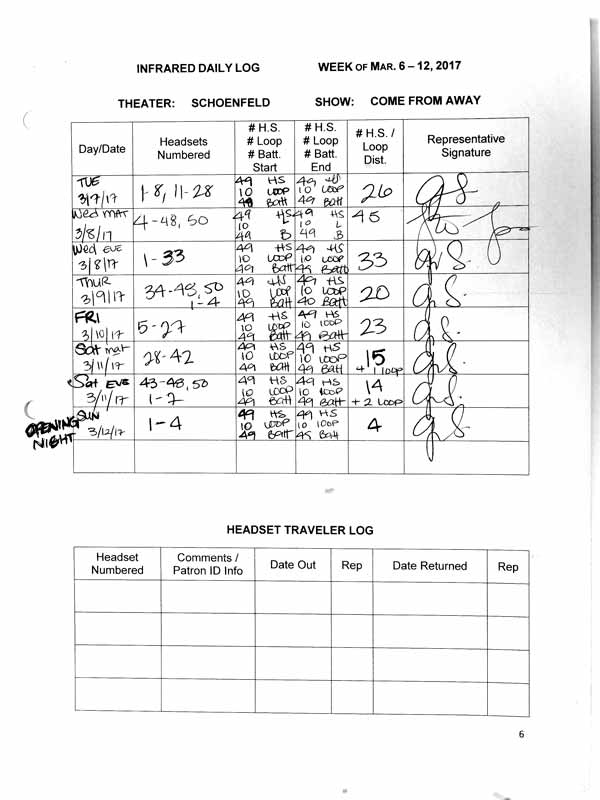 INFRARED DAILY LOG WEEK OF MAR. 6 – 12, 2017
THEATER: SCHOENFELD SHOW: COME FROM AWAY
Day/Date Headsets Numbered # H.S. # Loop # Batt. Start # H.S. # Loop # Batt. End # H.S. / Loop Dist. Representative Signature
TUE 3/7/17 1-8, 11-28 49 HS 10 LOOP 49 Batt 49 HS 10 LOOP 49 Batt 26
Wed mat 3/8/17 4-48, 50 49 HS 10 L 49 B 49 HS 10 L 49 B 45
Wed EVE 3/8/17 1-33 49 HS 10 LOOP 49 Batt 49 HS 10 LOOP 49 Batt 33
THUR 3/9/17 34-48, 50 1-4 49 HS 10 LOOP 49 Batt 49 HS 10 LOOP 40 Batt 20
FRI 3/10/17 5-27 49 HS 10 LOOP 49 Batt 49 HS 10 LOOP 49 Batt 23
Sat mat 3/11/17 28-42 49 HS 10 LOOP 49 Batt 49 HS 10 LOOP 49 Batt 15 + 1 loop
Sat EVE 3/11/17 43-48, 50 1-7 49 HS 10 LOOP 49 Batt 49 HS 10 LOOP 49 Batt 14 + 2 LOOP
OPENING NIGHT SUN 3/12/17 1-4 49 HS 10 LOOP 49 Batt 49 HS 10 LOOP 45 Batt 4
HEADSET TRAVELER LOG
Headset Numbered Comments / Patron ID Info Date Out Rep Date Returned Rep
6